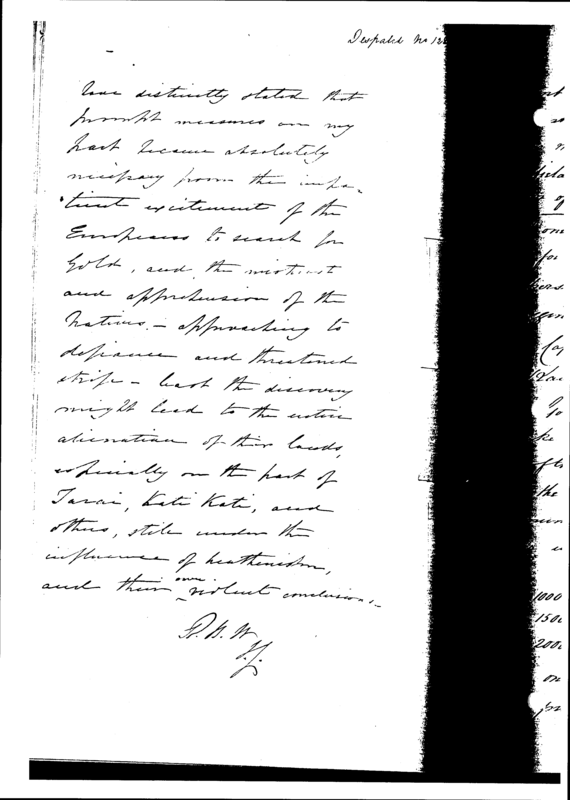 Despatch No 12
have distinctly stated that
prompt measures on my
part became absolutely
necessary from the impa-
tient excitement of the
Europeans to search for
Gold, and the mistrust
and apprehension of the
Natives - approaching to
defiance and threatened
strife - least the discovery
might lead to the entire
alienation of their lands,
especially on the part of
Taraia, Kati Kati, and
others, still under the
influence of heathenism,
and their own violent conclusions.-
R. H. W
the
1000
150
200
on